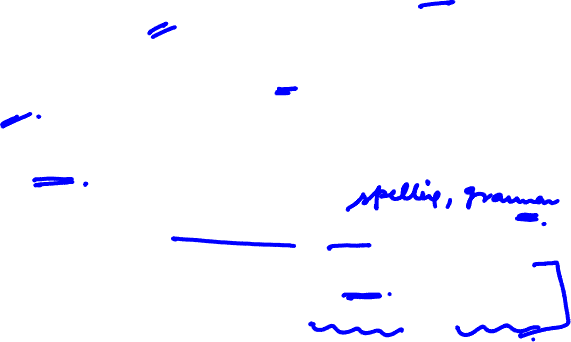 spelling, grammar